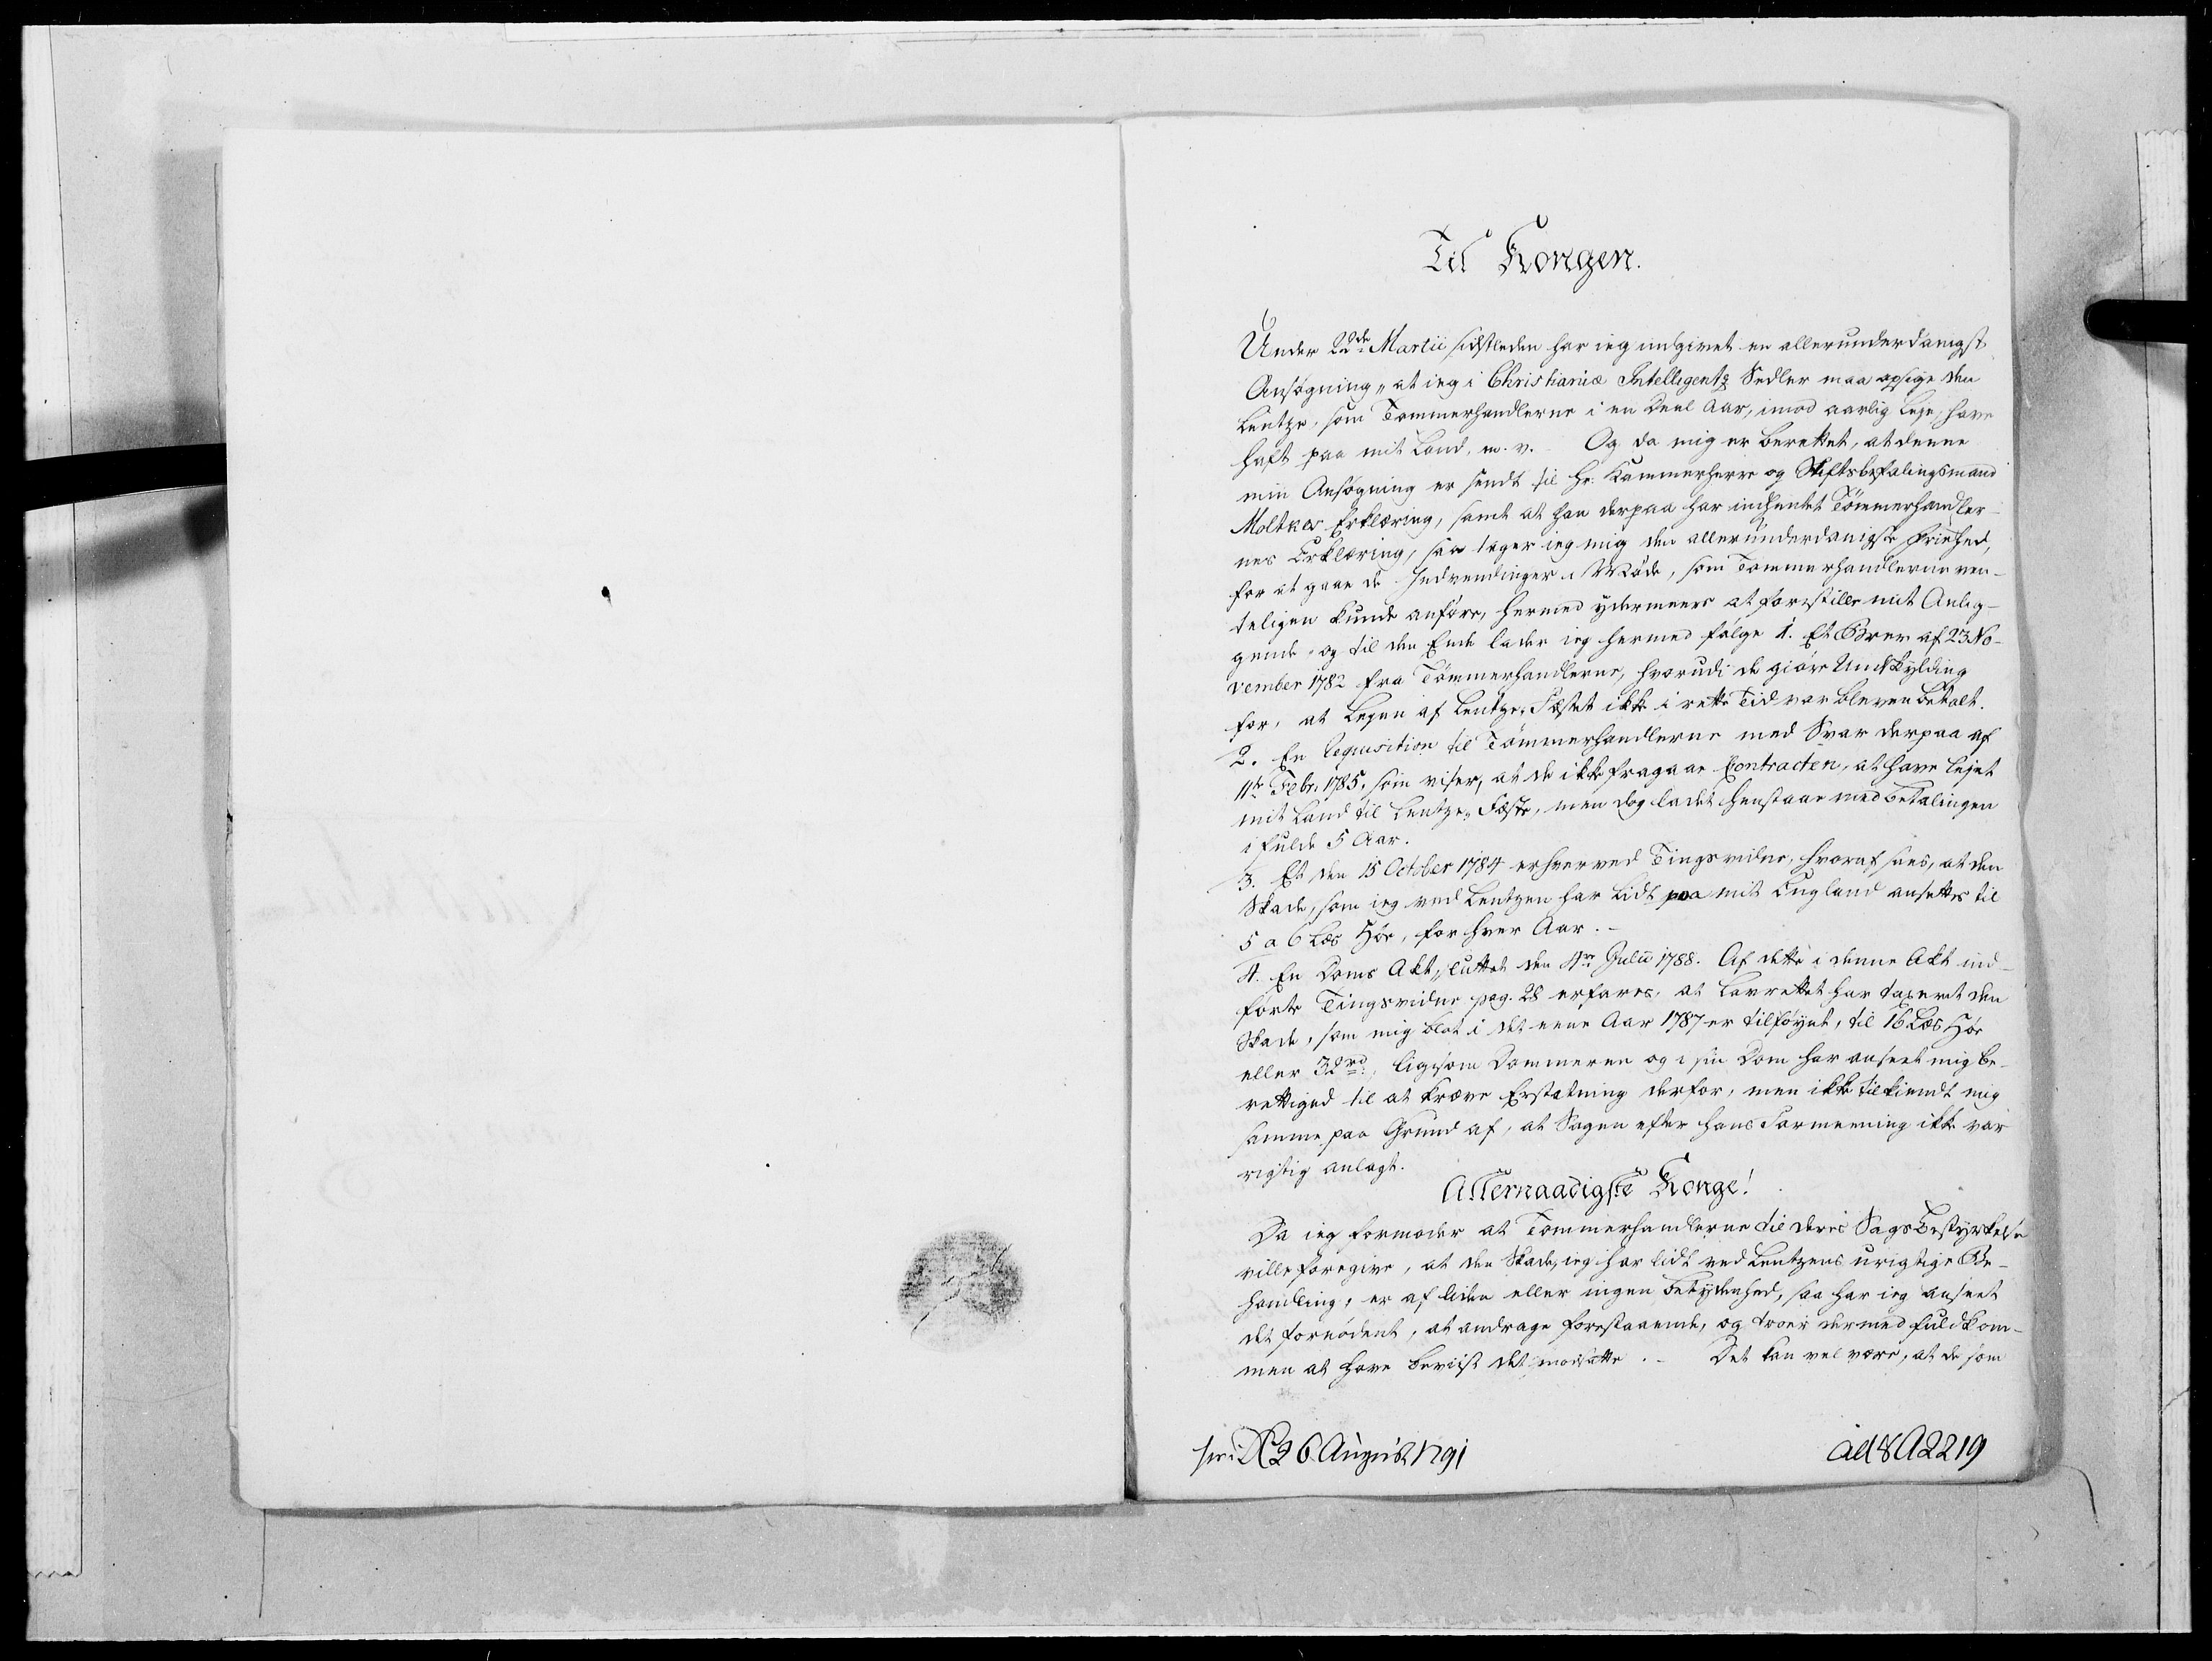 Til Kongen.
Under 22de Martii sidstleden har ieg indgivet en allerunderdanigst
Ansøgning, at ieg i Christianiæ Intelligentz Sedler maa opsige den
Lentze, som Tømmerhandlerne i en Deel Aar, imod aarlig Leje, have
haft paa mit Land, m. v. Og da mig er berettet, at denne
min Ansøgning er sendt til Hr. Kammerherre og Stiftsbefalingsmand
Moltkes Erklæring, samt at han derpaa har indhentet Tømmerhandler-
nes Erklæring, saa tager ieg mig den allerunderdanigste Friehed,
for at gaae de Indvendinger i Møde, som Tømmerhandlerne ven-
teligen kunde anføre, hermed ydermeere at forestille mit Anlig-
gende, og til den Ende lader ieg hermed følge 1. Et Brev af 23 No-
vember 1782 fra Tømmerhandlerne, hvorudi de giøre Undskylding
for, at Lejen af Lentze-Fæstet ikke i rette Tid var bleven betalt.
2. En Requisition til Tømmerhandlerne med Svar derpaa af
11te Febr. 1785, som viser, at de ikke fragaae Contracten, at have lejet
mit Land til Lentze-Fæste, men dog ladet henstaae med betalingen
i fulde 5 Aar.
3. Et den 15 October 1784 erhvervet Tingsvidne, hvoraf sees, at den
Skade, som ieg ved Lentzen har lidt paa mit England ansættes til
5 a 6 Læs Høe, for hver Aar.-
4. En Doms Akt, sluttet den 4de Julii 1788. Af dette i denne Akt ind-
førte Tingsvidne pag. 28 erfares, at Lavrettet har taxeret den
Skade, som mig blot i det eene Aar 1787 er tilføyet, til 16 Læs Høe
eller 32 rd., ligesom Dommeren og i sin Dom har anseet mig be-
rettiged til at kræve Erstatning derfor, men ikke tilkiendt mig
samme, paa Grund af, at Sagen efter hans Formeening ikke var
rigtig anlagt.
Allernaadigste Konge!
Da ieg formoder at Tømmerhandlerne til deres Sags Bestyrkelse
ville foregive, at den Skade, ieg har lidt ved Lentzens urigtige Be-
handling, er af liden eller ingen betydenhed, saa har ieg anseet
det fornødent, at andrage forestaaende, og troer dermed fuldkom-
men at have beviist det modsatte. - Det kan vel være, at de som
26 August 1791
ad 8 A 2219